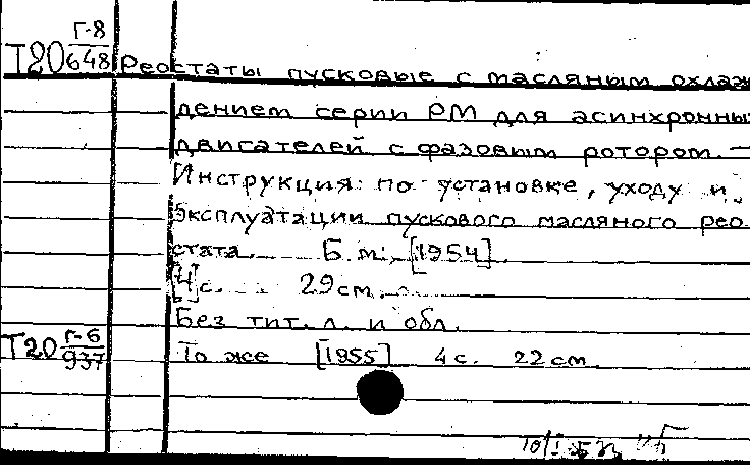 Т20 Г-8/648 Реостаты пусковые с масляным охлаж
дением серии РМ для асинхронных
двигателей с фазовым ротором. —
Инструкция по установке, уходу и
эксплуатации пускового масляного рео
стата. Б.м., [1954].
[4]с. 29см.
Без тит. л. и обл.
Т20 Г-6/937 То же [1955] 4с. 22см